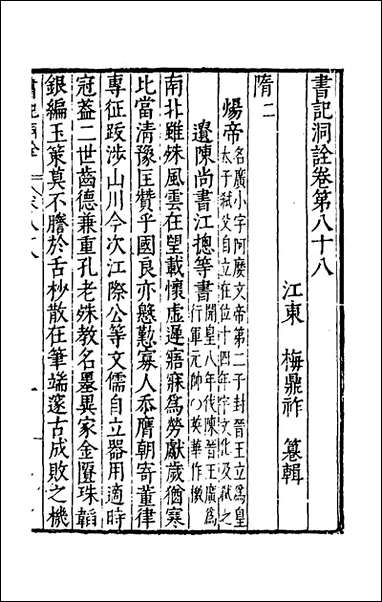 書記洞詮卷第八十八
江東 梅鼎祚 纂輯
隋二
煬帝 名廣小字阿𡡉文帝第二子封晉王立爲皇
太子弑父自立在位十四年宇文化及弑之
遺陳尚書江摠等書 開皇八年伐陳晉王廣爲
行軍元帥 作檄
南北雖殊風雲在望載懷虛遲寤寐爲勞獻歲猶寒
比當清豫匡贊乎國良亦慇懃寡人忝膺朝寄董律
專征跋涉山川今次江際公等文儒自立器用適時
冠蓋二世齒德兼重孔老殊教名墨異家金匱珠韜
銀編玉策莫不謄於舌杪散在筆端邃古成敗之機